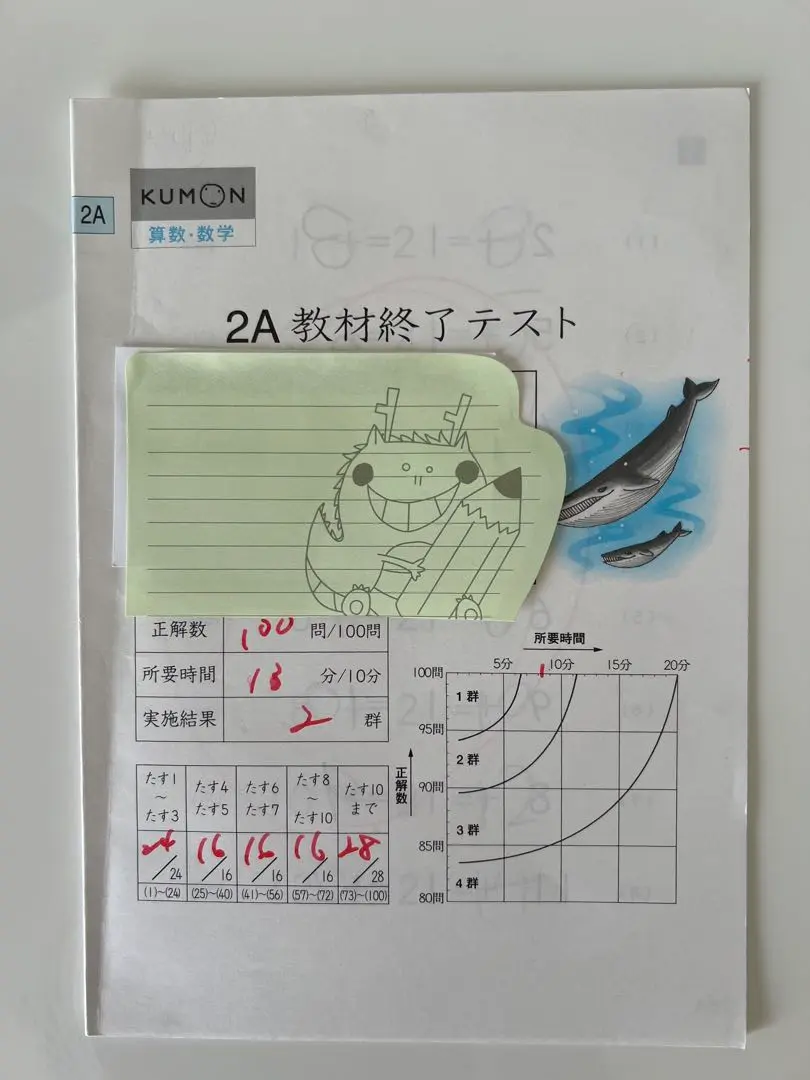 2A
KUMON
算数・数学
2A 教材終了テスト
正解数 100 問/100問
所要時間 分/10分
実施結果 2 群
たす1～たす3 たす4たす5 たす6たす7 たす8～たす10 たす10まで
24/24 16/16 16/16 16/16 28/28
(1)~(24) (25)~(40) (41)~(56) (57)~(72) (73)~(100)
所要時間
5分 10分 15分 20分
100問
1群
95問
2群
90問
正解数
3群
85問
4群
80問